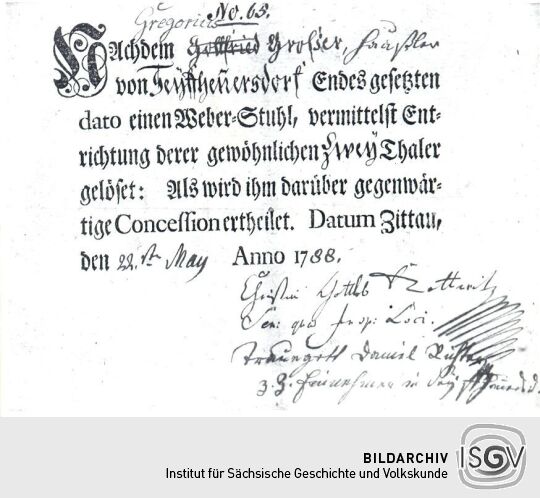 No. 63.
Gregorius
Nachdem Gottfried Großer, Häußler
von Seyffhennersdorf Endes gesetzten
dato einen Weber-Stuhl, vermittelst Ent-
richtung derer gewöhnlichen Zwey Thaler
gelöset: Als wird ihm darüber gegenwär-
tige Concession ertheilet. Datum Zittau,
den 22. May Anno 1788.
Christian Gottlob
Loci.
Traugott Daniel Richter
BILDARCHIV
Institut für Sächsische Geschichte und Volkskunde
ISGV